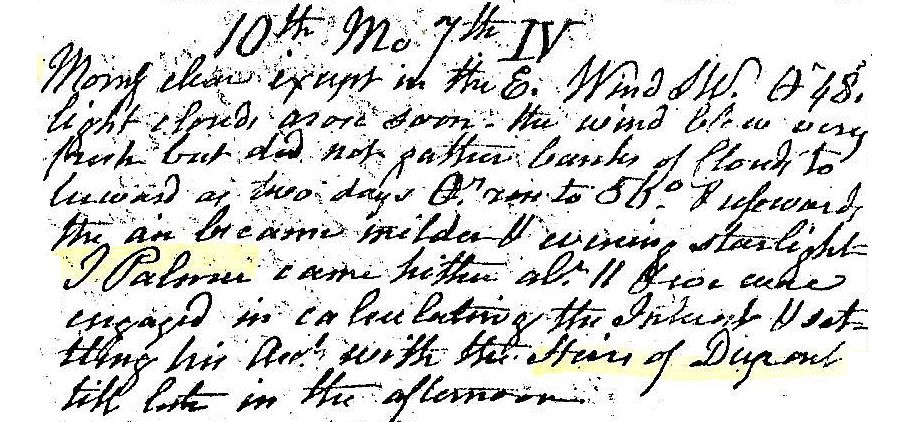 10th Mo 7th IV
Morng clear except in the E. Wind SW. Or 48°.
light clouds arose soon - the wind blew very
fresh but did not gather banks of Clouds to
leward as two days Or. rose to 56° & upwards
the air became milder & evening starlight
J Palmer came hither abt. 11 & we were
engaged in calculating the Interest & set-
tling his Acct. with the Heirs of Dupont
till late in the afternoon.